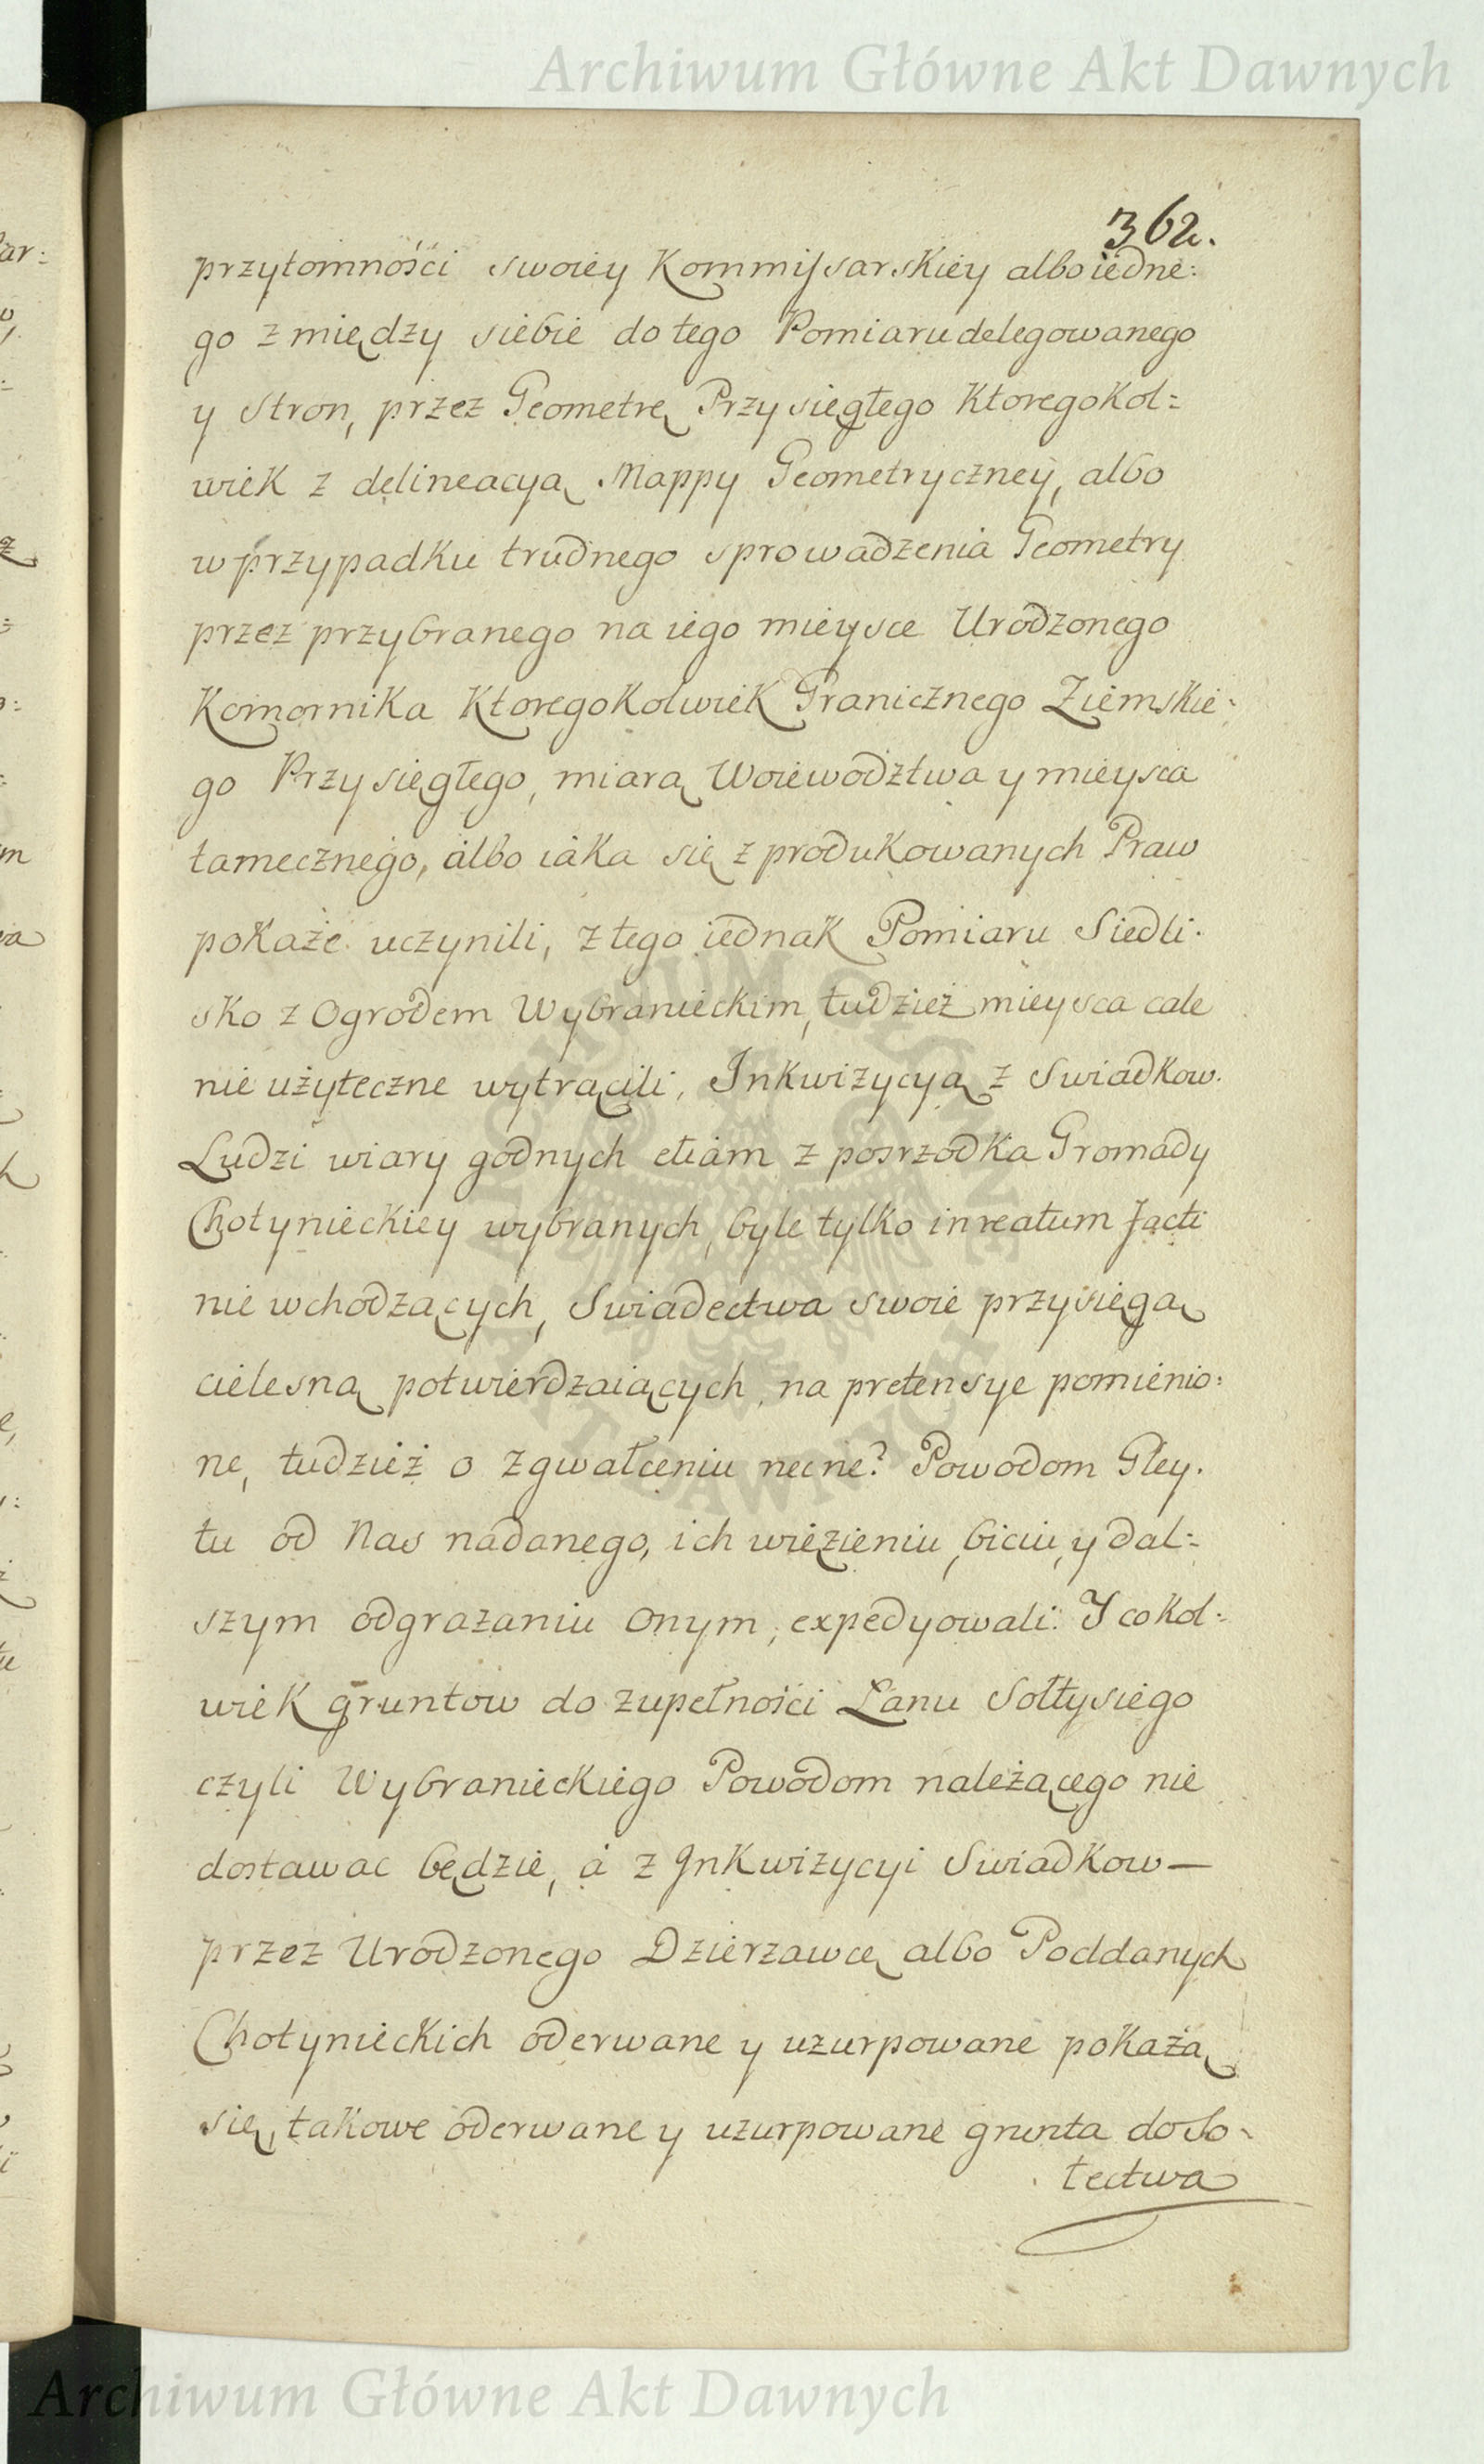 Archiwum Główne Akt Dawnych
362.
przytomności swoiey Kommissarskiey albo iedne:
go z między siebie do tego Pomiaru delegowanego
y Stron, przez Geometrę Przysięgłego Ktoregokol=
wiek z delineacyą Mappy Geometryczney, albo
w przypadku trudnego sprowadzenia Geometry
przez przybranego na iego mieysce Urodzonego
Komornika Ktoregokolwiek Granicznego Ziemskie:
go Przysięgłego, miarą Woiewodztwa y mieysca
tamecznego, albo iaka się z produkowanych Praw
pokaże uczynili, z tego iednak Pomiaru Siedli:
sko z Ogrodem Wybranieckim, tudzież mieysca cale
nie użyteczne wytrącili, Inkwizycyą z Swiadkow
Ludzi wiary godnych etiam z posrzodka Gromady
Chotynieckiey wybranych, byle tylko in reatum facti
nie wchodzących, Swiadectwa swoie przysięgą
cielesną potwierdzaiących, na pretensye pomienio:
ne, tudzież o zgwałceniu necne? Powodom Gley:
tu od Nas nadanego, ich więzieniu, biciu, y dal=
szym odgrażaniu onym, expedyowali: Y cokol=
wiek gruntow do zupełności Łanu Sołtysiego
czyli Wybranieckiego Powodom należącego nie
dostawac będzie, a z Inkwizycyi Swiadkow—
przez Urodzonego Dzierzawcę albo Poddanych
Chotynieckich oderwane y uzurpowane pokażą
się, takowe oderwane y uzurpowane grunta do So=
tectwa
Archiwum Główne Akt Dawnych